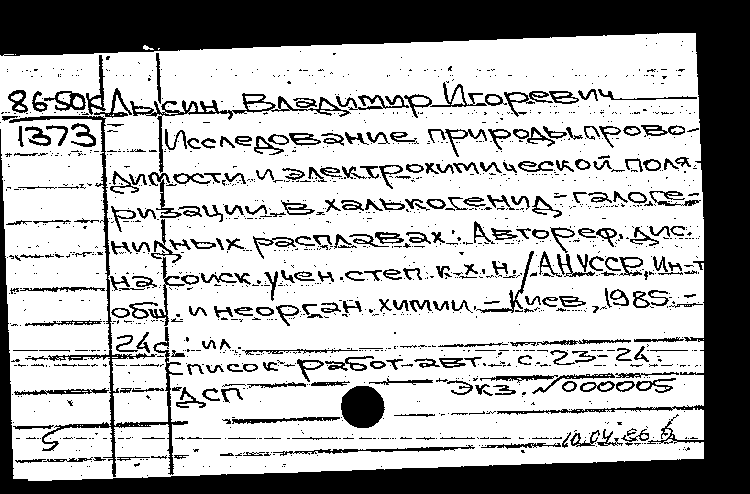 86-50К Лысин, Владимир Игоревич
1373 Исследование природы прово-
димости и электрохимической поля-
ризации в халькогенид-галоге-
нидных расплавах: Автореф. дис.
на соиск. учен. степ. к.х.н. / АН УССР, Ин-т
общ. и неорган. химии. – Киев, 1985 –
24с.: ил.
Список работ авт.: с. 23-24.
ДСП экз. №000005
5 10.04.86